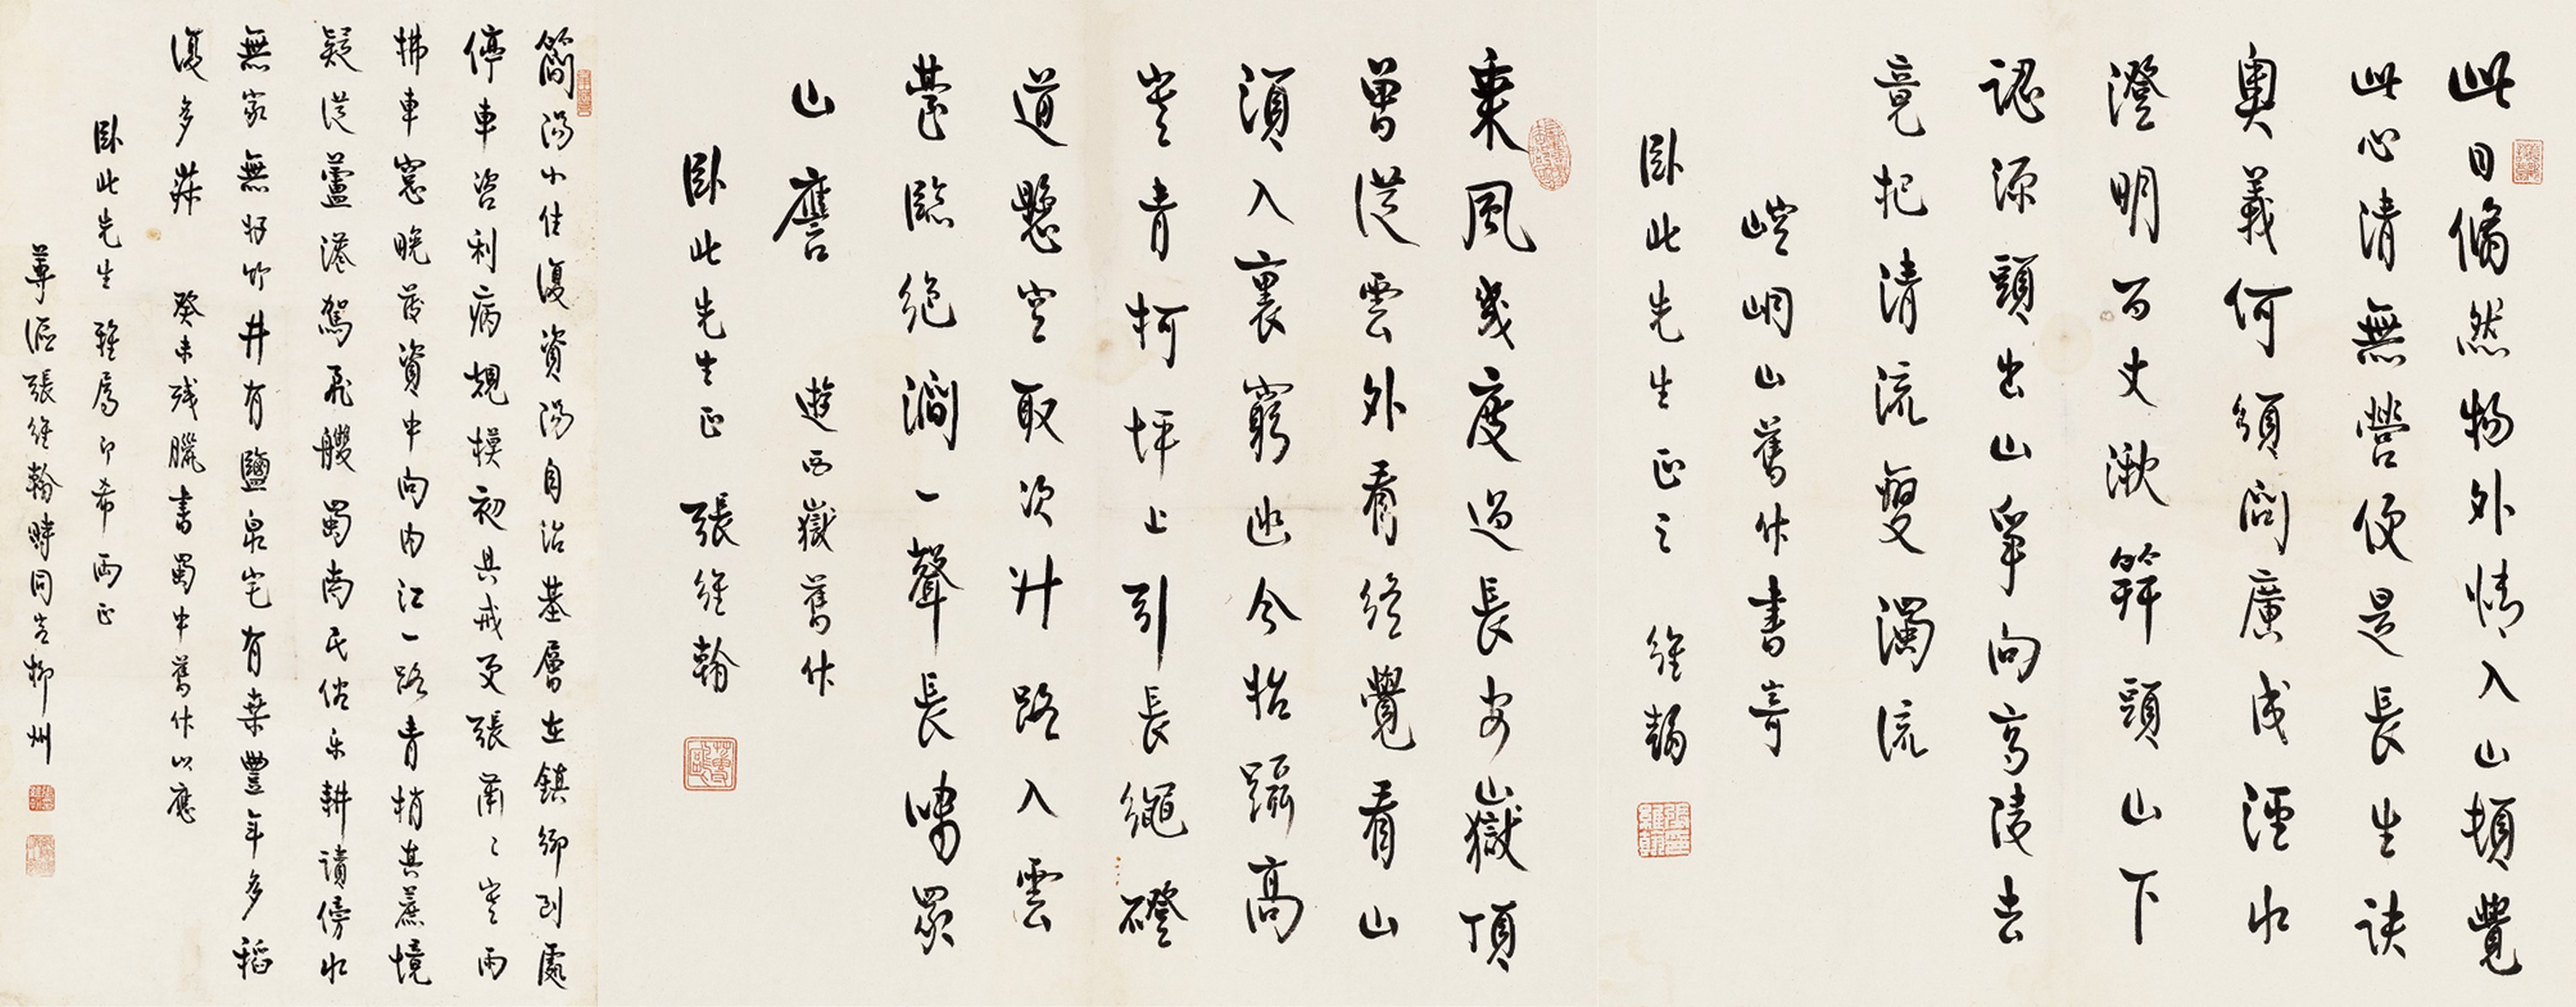 此日翛然物外情入山頓覺
此心清無營便是長生訣
奧義何須問廣成涇水
澄明百丈湫笄頭山下
認源頭出山爭向高陵去
竟把清流變濁流
崆峒山舊作書寄
臥此先生正之 維翰
乘風幾度過長安山嶽頂
曾從雲外看終覺看山
須入裏窮幽今始躡高
寒青柯坪上引長繩磴
道懸空取次升路入雲
臺臨絕澗一聲長嘯眾
山譍 遊西嶽舊作
臥此先生正 張維翰
簡陽小住復資陽自治基層在鎮鄉到處
停車咨利病規模初具戒更張肅肅寒雨
拂車窗晚發資中向內江一路青梢其蔗境
疑從蘆港駕飛艭蜀南民俗樂耕讀傍水
無家無好竹井有鹽泉宅有桑豐年多稻
復多麻 癸未殘臘書蜀中舊作以應
臥此先生雅屬即希兩正
蓴漚張維翰時同客柳州